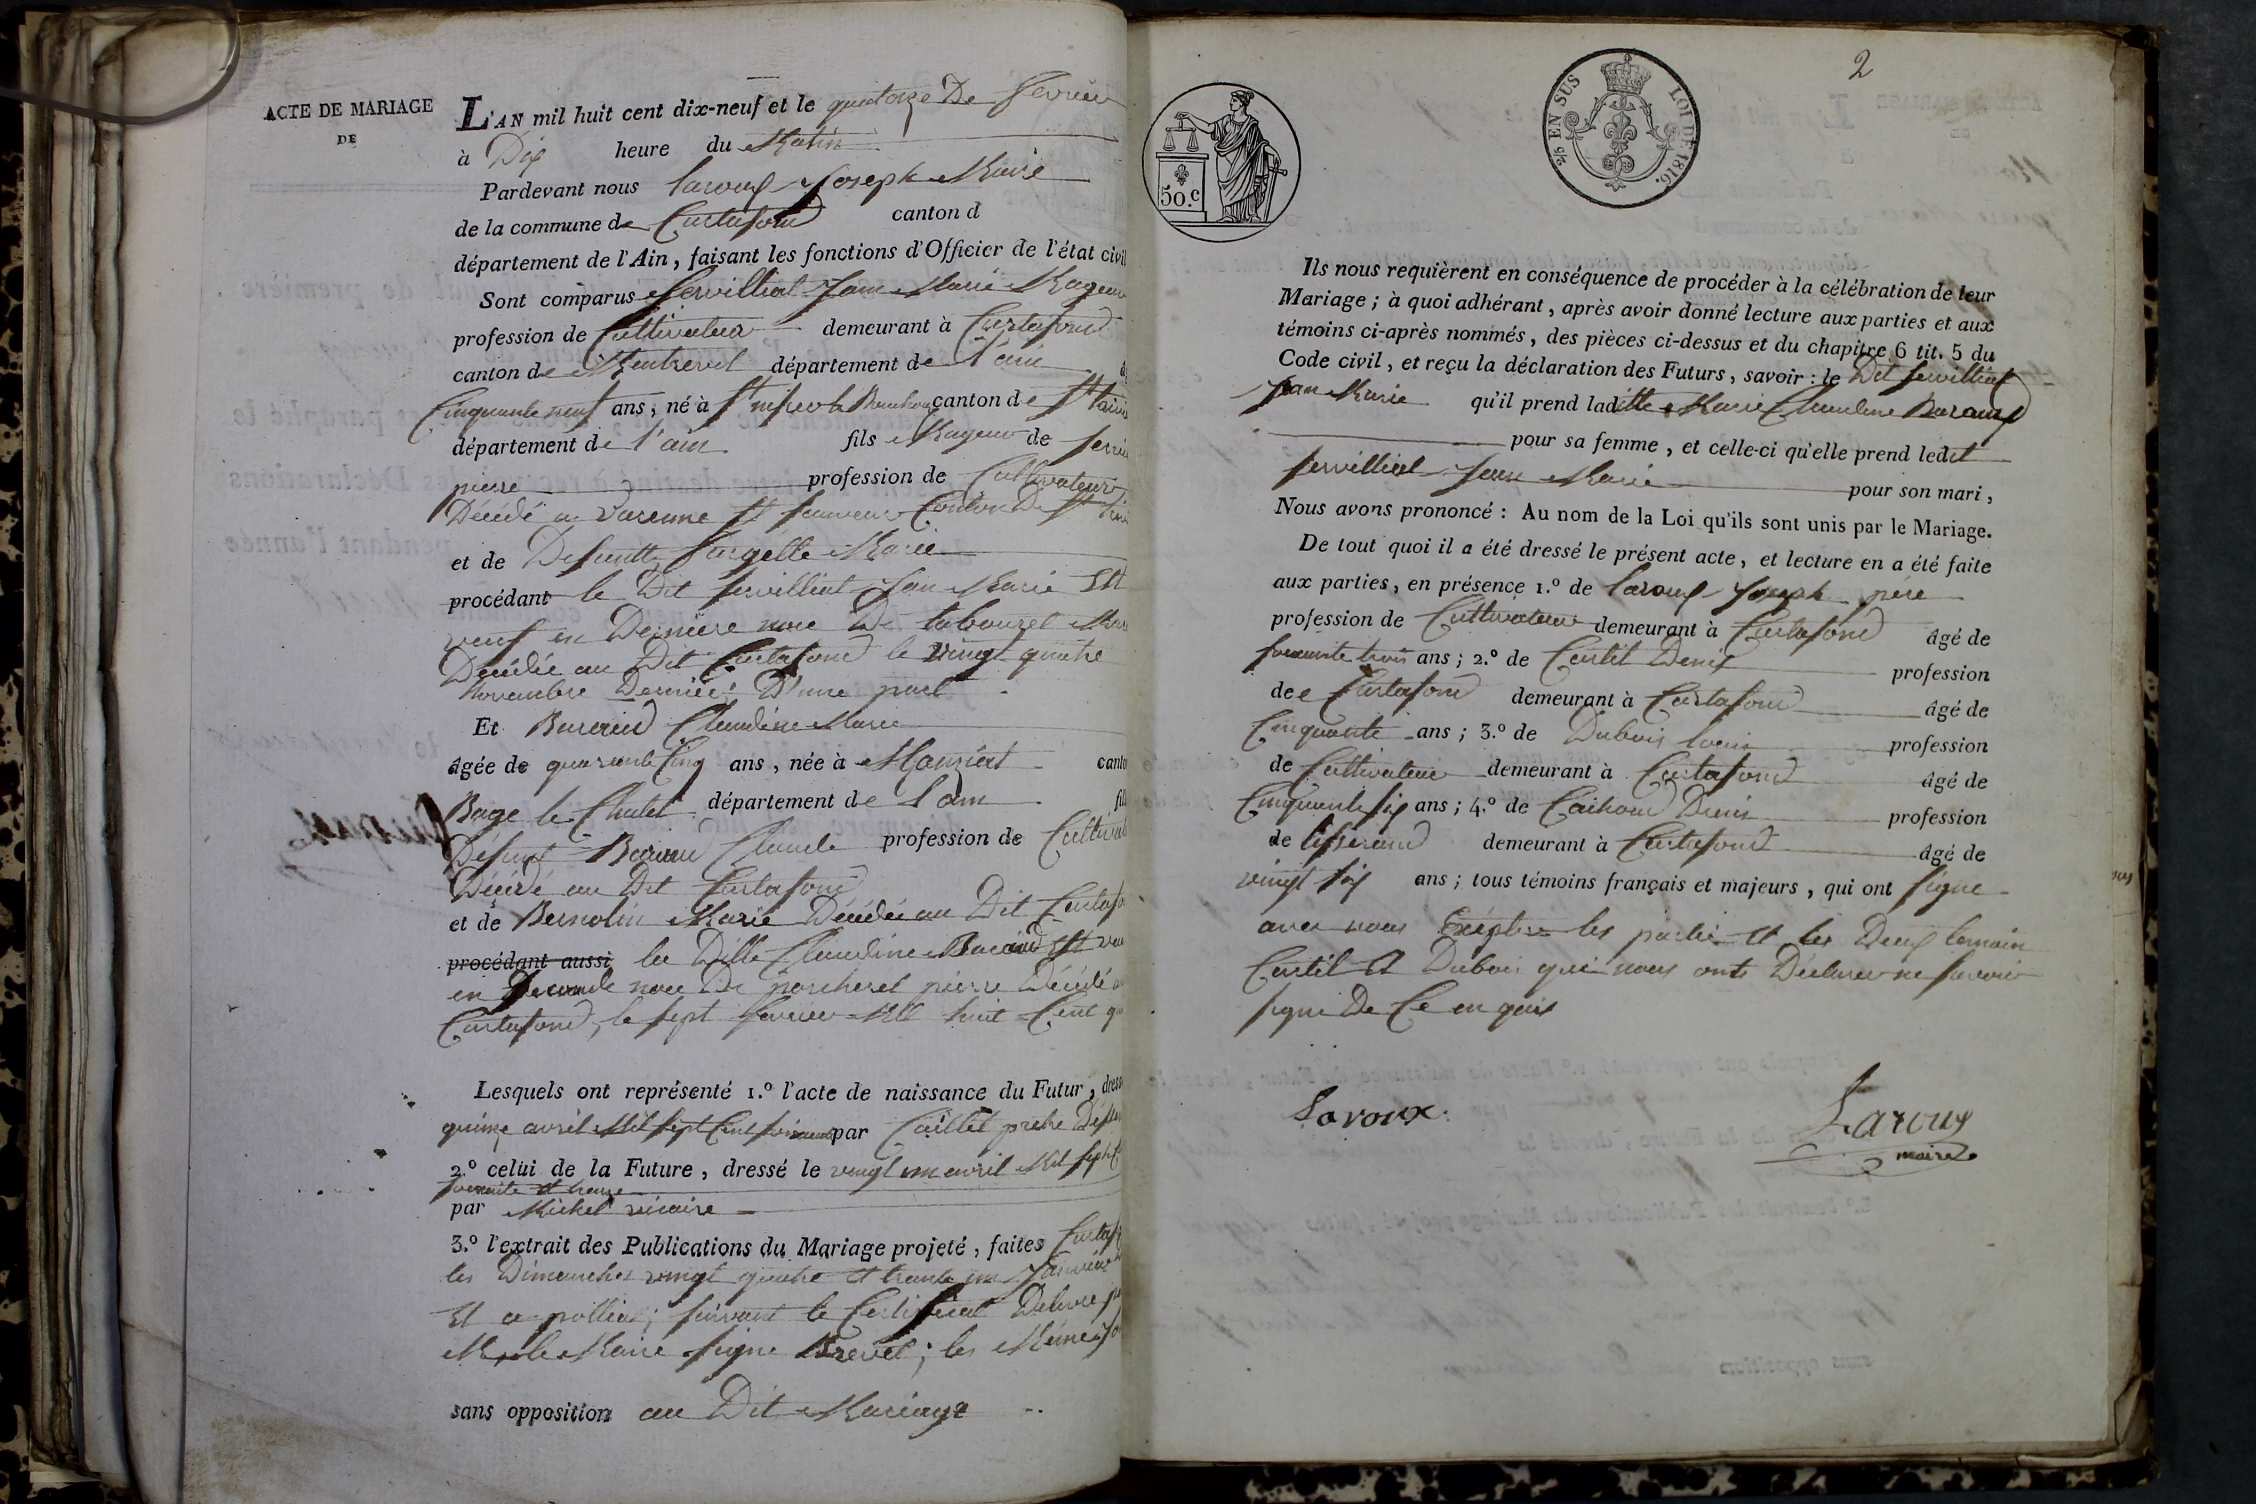 ACTE DE MARIAGE
DE
L'AN mil huit cent dix-neuf et le quatorze De fevrier
à Dix heure du Matin
Pardevant nous laroux Joseph Maire
de la commune de Curtafond canton d
département de l'Ain, faisant les fonctions d'Officier de l'état civil
Sont comparus servilliat Jean Marie Mageur
profession de Cultivateur demeurant à Curtafond
canton de Montrevel département de l'ain
Cinquante neuf ans, né à canton de St
département de l'ain fils Mageur de
pierre profession de Cultivateur
Décédé a Varenne St sauveur Canton De St
et de Defuntte Marie
procédant le Dit servilliat Jean Marie Est
veuf en Derniere noce De tabouret
Decédée au Dit Curtafond le vingt quatre
Novembre Dernier D'une part
Et Buraud Claudine Marie
âgée de quarante Cinq ans, née à Manziat
Bage le Chatel département de l'ain
Défunt Claude profession de
Décédé au Dit Curtafond
et de Bernolin Marie Décédée au Dit
procédant aussi la Ditte Claudine Est
en seconde noce De porcheret pierre Décédé
Curtafond, le sept fevrier Mil huit Cent
Lesquels ont représenté 1.º l'acte de naissance du Futur,
quinze avril Mil sept Cent par Caillet pretre
2.º celui de la Future, dressé le vingt un avril Mil sept
soixante et treize
par Michel vicaire
3.º l'extrait des Publications du Mariage projeté, faites
les Dimanches vingt quatre et trente un Janvier
Et a polliat, suivant le Certificat Delivre
Mr le Maire signe Brevet; les Même
sans opposition au Dit Mariage
2
50.c
2/5 EN SUS LOI DE 1816.
Ils nous requièrent en conséquence de procéder à la célébration de leur
Mariage; à quoi adhérant, après avoir donné lecture aux parties et aux
témoins ci-après nommés, des pièces ci-dessus et du chapitre 6 tit. 5 du
Code civil, et reçu la déclaration des Futurs, savoir: le Dit servilliat
Jean Marie qu'il prend laditte Marie Claudine
pour sa femme, et celle-ci qu'elle prend ledit
servilliat Jean Marie pour son mari,
Nous avons prononcé: Au nom de la Loi qu'ils sont unis par le Mariage.
De tout quoi il a été dressé le présent acte, et lecture en a été faite
aux parties, en présence 1.º de laroux Joseph père
profession de Cultivateur demeurant à Curtafond âgé de
soixante trois ans; 2.º de Curtil Denis profession
de Curtafond demeurant à Curtafond âgé de
Cinquante ans; 3.º de Dubois louis profession
de Cultivateur demeurant à Curtafond âgé de
Cinquante six ans; 4.º de Denis profession
de tisserand demeurant à Curtafond âgé de
vingt six ans; tous témoins français et majeurs, qui ont signe
avec nous Exépter les partie et les Deux temoin
Curtil et Dubois qui nous onts Déclarer ne savoir
signe De Ce en quis
Laroux.
Laroux
maire